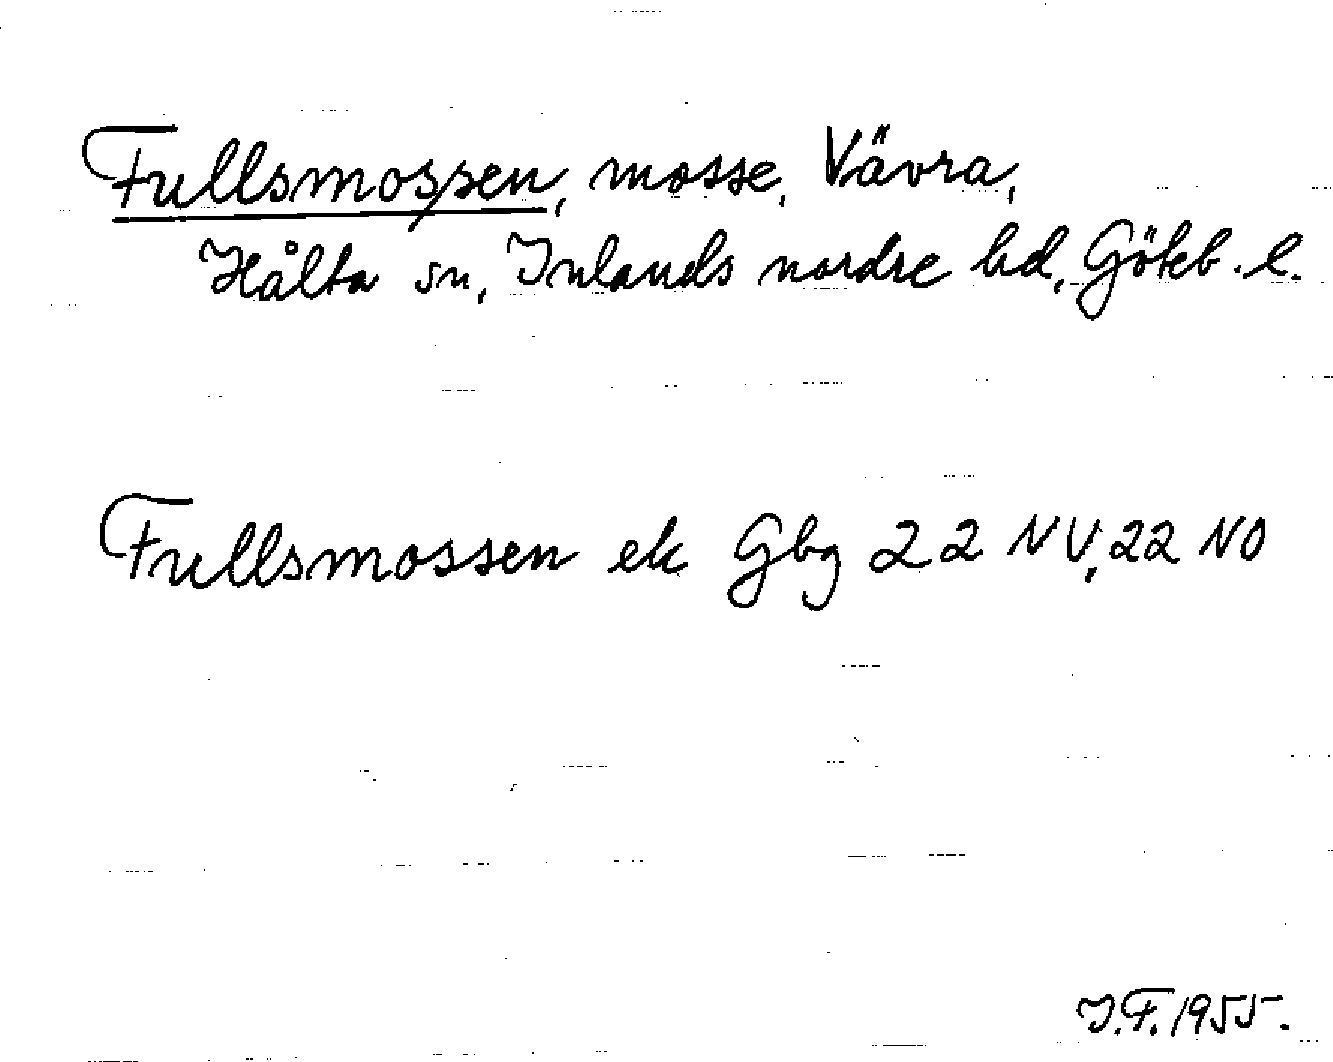 Fullsmossen, mosse, Vävra,
Hålta sn, Inlands nordre hd, Göteb. l.
Fullsmossen ek Gbg 22 NV, 22 NO
I.F. 1955.